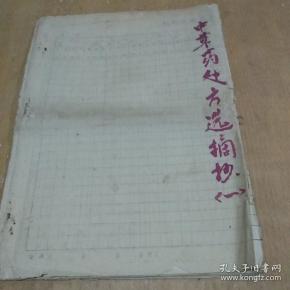 中草药处方选摘抄(一)
孔夫子旧书网